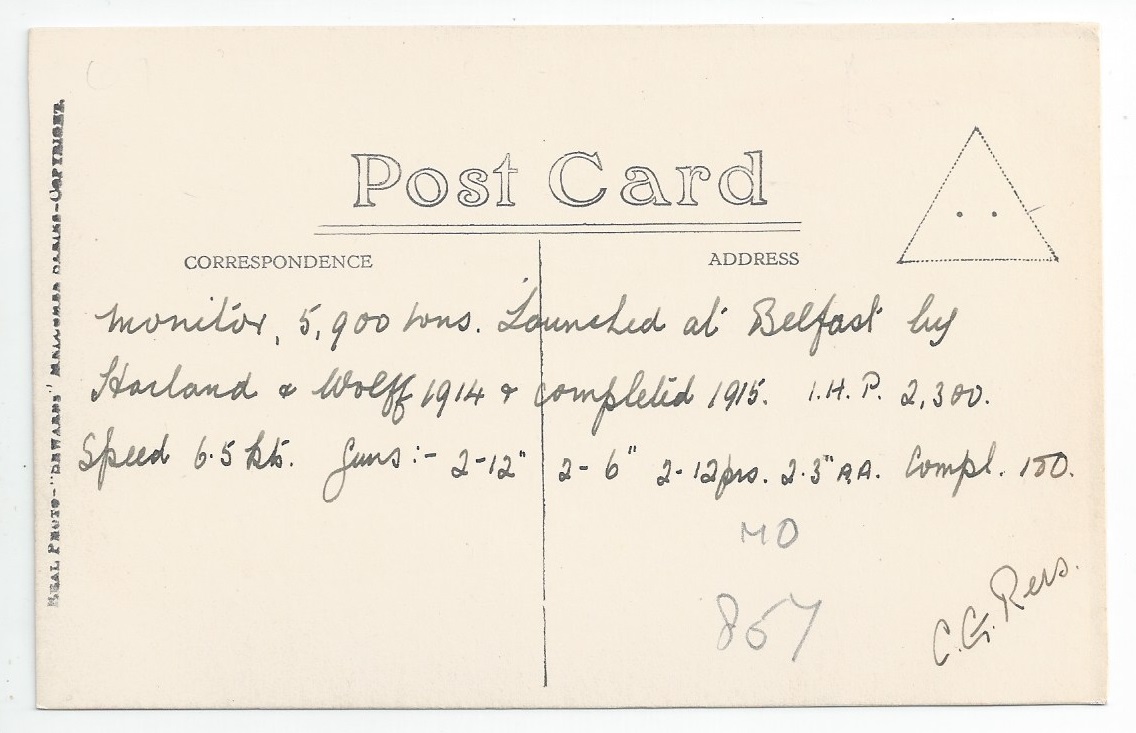 Post Card
CORRESPONDENCE
ADDRESS
Monitor, 5,900 tons. Launched at Belfast by
Harland & Wolff 1914 & completed 1915. I.H.P. 2,300.
Speed 6.5 kts. Guns:- 2-12" 2-6" 2-12prs. 2-3" A.A. Compl. 150.
MO
857
C.G.
REAL PHOTO-"DEWARDS" COPYRIGHT.